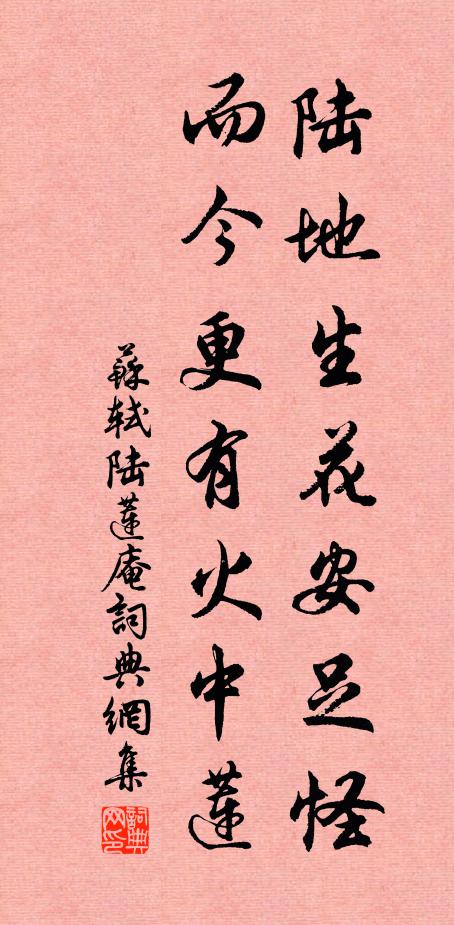 陆地生花安足怪
而今更有火中蓮
蘇軾陆蓮庵詞典網集
詞典网印